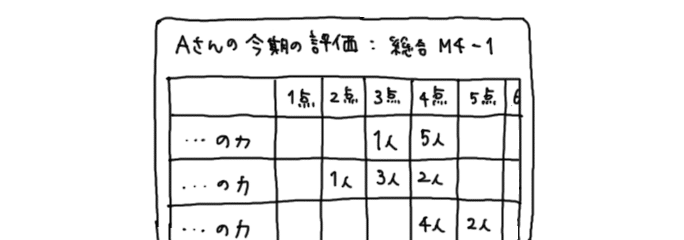 Aさんの今期の評価: 総合 M4-1
1点 2点 3点 4点 5点 6
...の力 1人 5人
...の力 1人 3人 2人
...の力 4人 2人